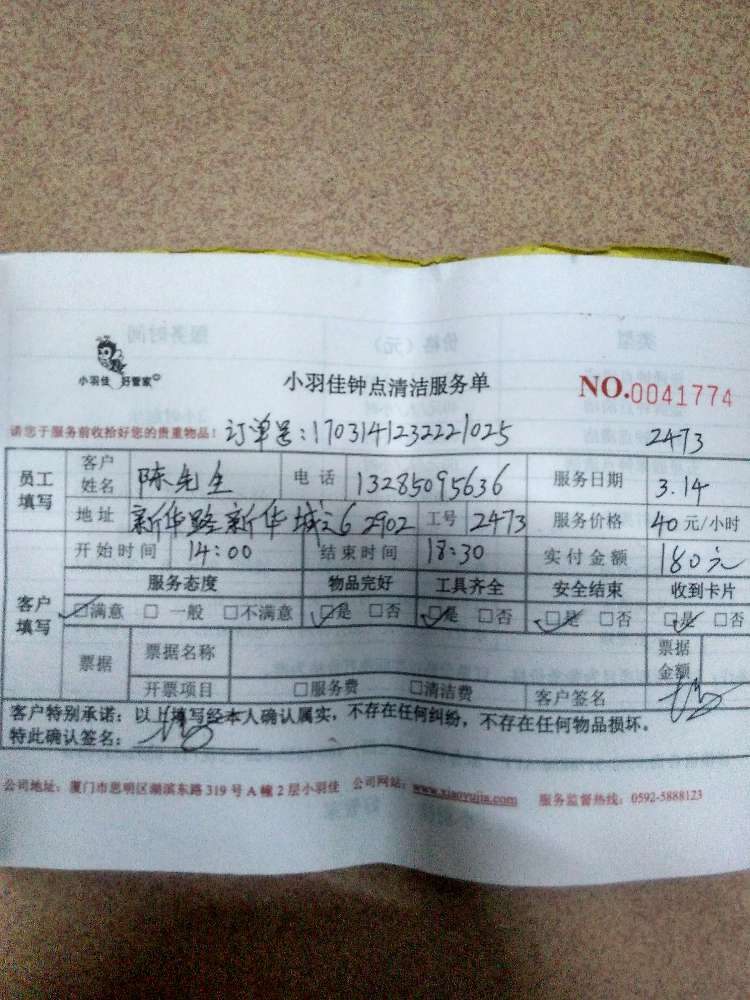 小羽佳 好管家
小羽佳钟点清洁服务单 NO.0041774
请您于服务前收拾好您的贵重物品! 订单号:1703141232221025 2473
员工填写 客户姓名 陈先生 电话 13285095636 服务日期 3.14
地址 新华路新华城 2902 工号 2473 服务价格 40元/小时
开始时间 14:00 结束时间 18:30 实付金额 180元
客户填写 服务态度 物品完好 工具齐全 安全结束 收到卡片
☑满意 □一般 □不满意 ☑是 □否 ☑是 □否 ☑是 □否 ☑是 □否
票据 票据名称 票据金额
开票项目 □服务费 □清洁费 客户签名
客户特别承诺:以上填写经本人确认属实,不存在任何纠纷,不存在任何物品损坏。
特此确认签名:
公司地址:厦门市思明区湖滨东路319号A幢2层小羽佳 公司网站:www.xiaoyujia.com 服务监督热线:0592-5888123